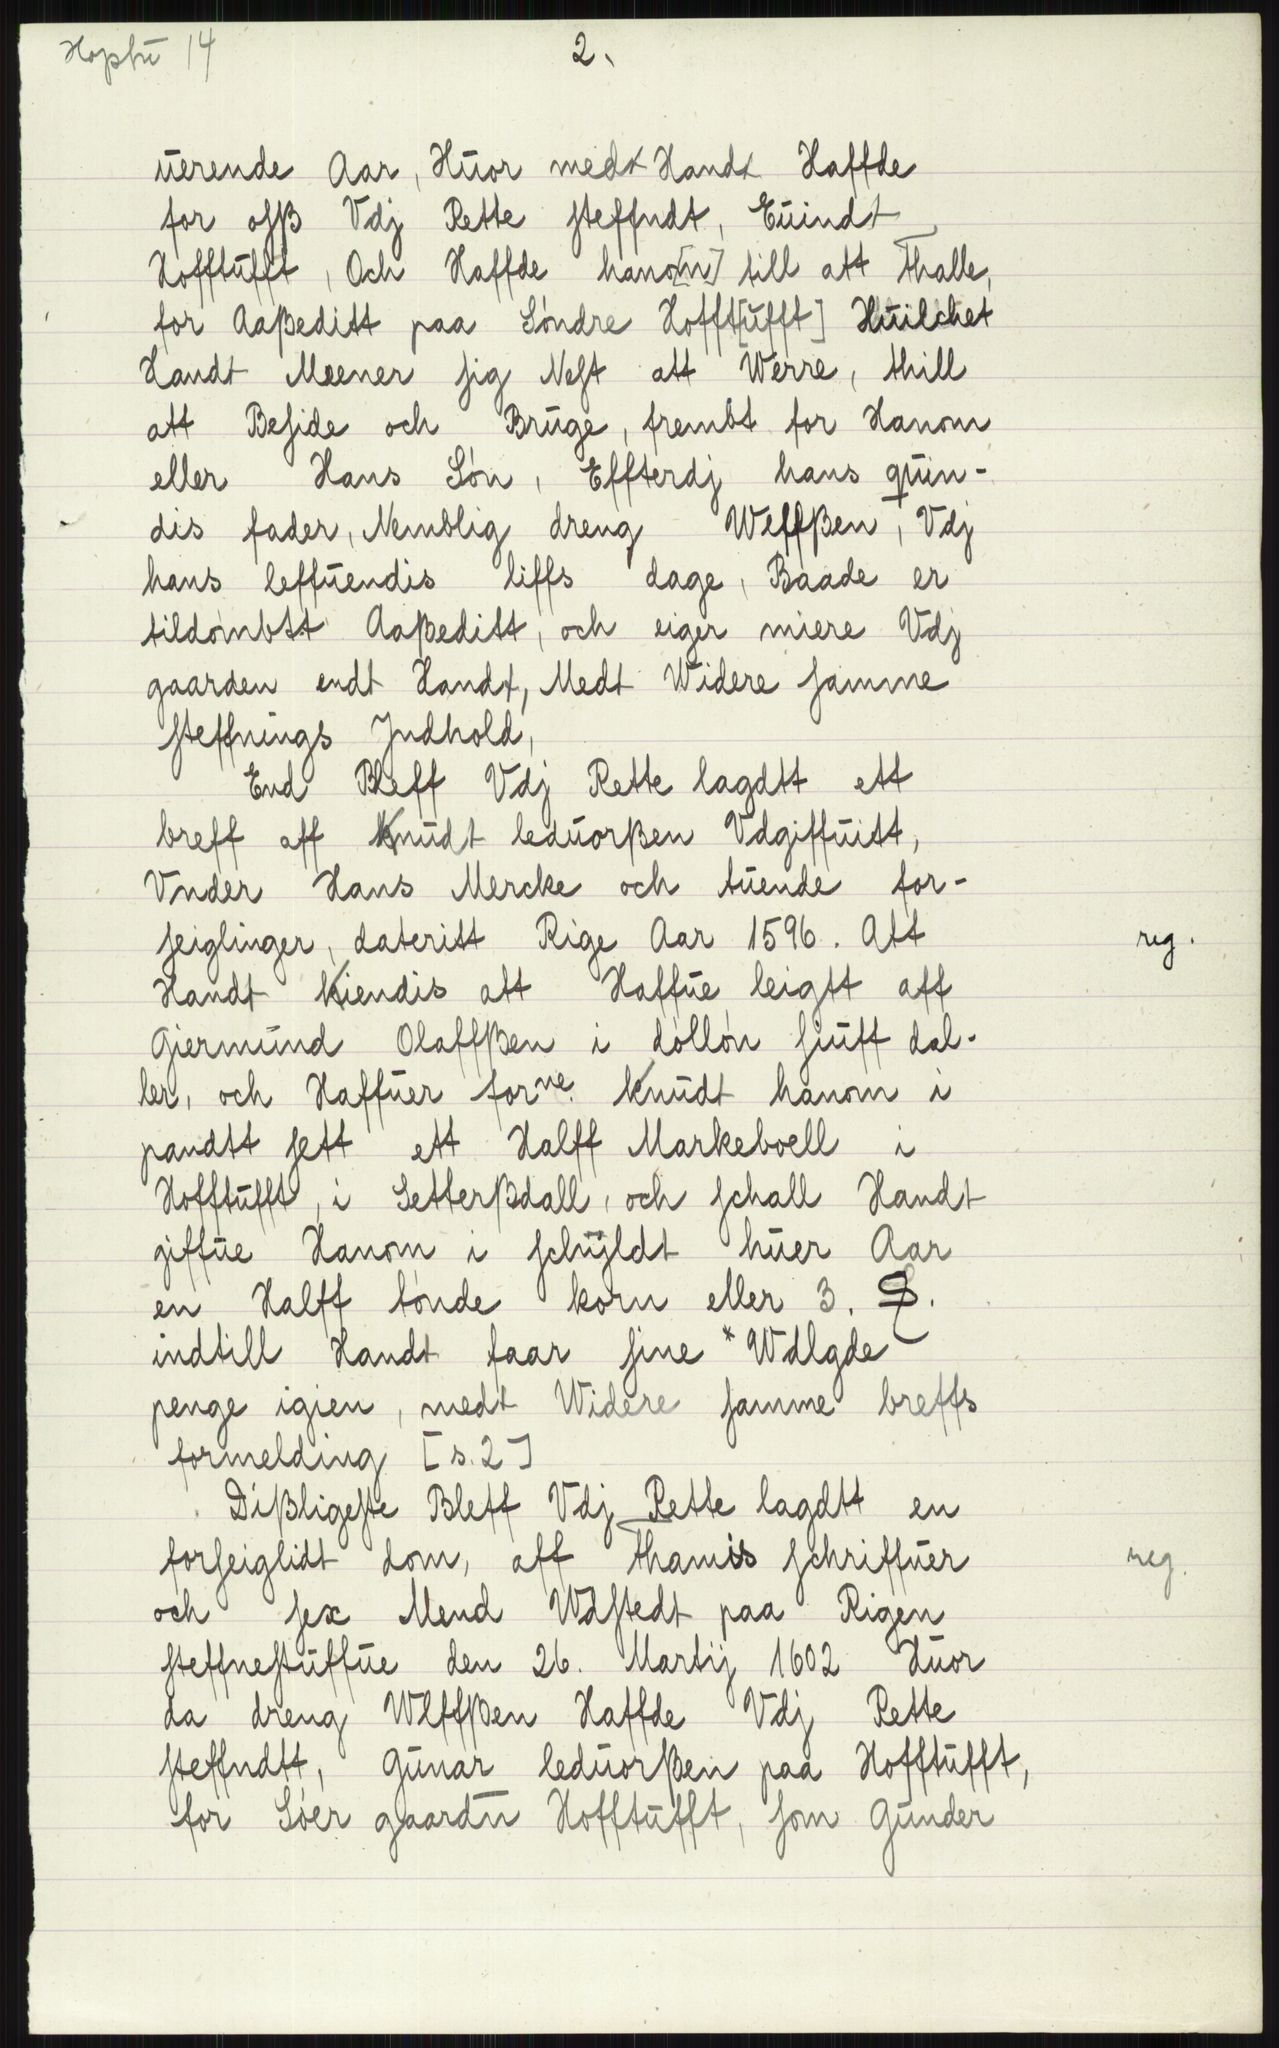 Hoptu 14
2.
uerende Aar, Huor medt Handt Haffde
for osß Vdj Rette steffndt, Euindt
Hofftufft, Och Haffde hano[m] till att Thalle,
for Aaßeditt paa Söndre Hofft[ufft] Huilchet
Handt Meener sig Nest att Werre, thill
att Beside och Bruge, frembt for Hanom
eller Hans Sön, Effterdj hans quin-
dis fader, Nemblig dreng Wlffßen, Vdj
hans leffuendis liffs dage, Baade er
tildömbtt Aaßeditt, och eiger miere Vdj
gaarden endt Handt, Medt Widere samme
steffnings Jndhold,
End Bleff Vdj Rette lagdtt ett
breff aff Knudt leduorßen Vdgiffuitt,
Vnder Hans Mercke och tuende for-
seiglinger, dateritt Rige Aar 1596. Att
reg.
Handt kiendis att Haffue leigtt aff
Giermund Olaffßen i döllön siuff dal-
ler, och Haffuer forne. knudt hanom i
pandtt sett ett Halff Markeboell i
Hofftufft, i Setterßdall, och schall Handt
giffue Hanom i schÿldt huer Aar
en Halff tönde korn eller 3.
indtill Handt faar sine *Wdlgde
penge igien, medt Widere samme breffs
formelding [s.2]
Dißligeste Bleff Vdj Rette lagdtt en
forseiglidt dom, aff Thamis schriffuer
reg.
och sex Mend Wdstedt paa Rigen
steffnestuffue den 26. Martij 1602 Huor
da dreng Wlffßen Haffde Vdj Rette
steffndtt, Gunar leduorßen paa Hofftufft,
for Söer gaardn Hofftufft, som Gunder